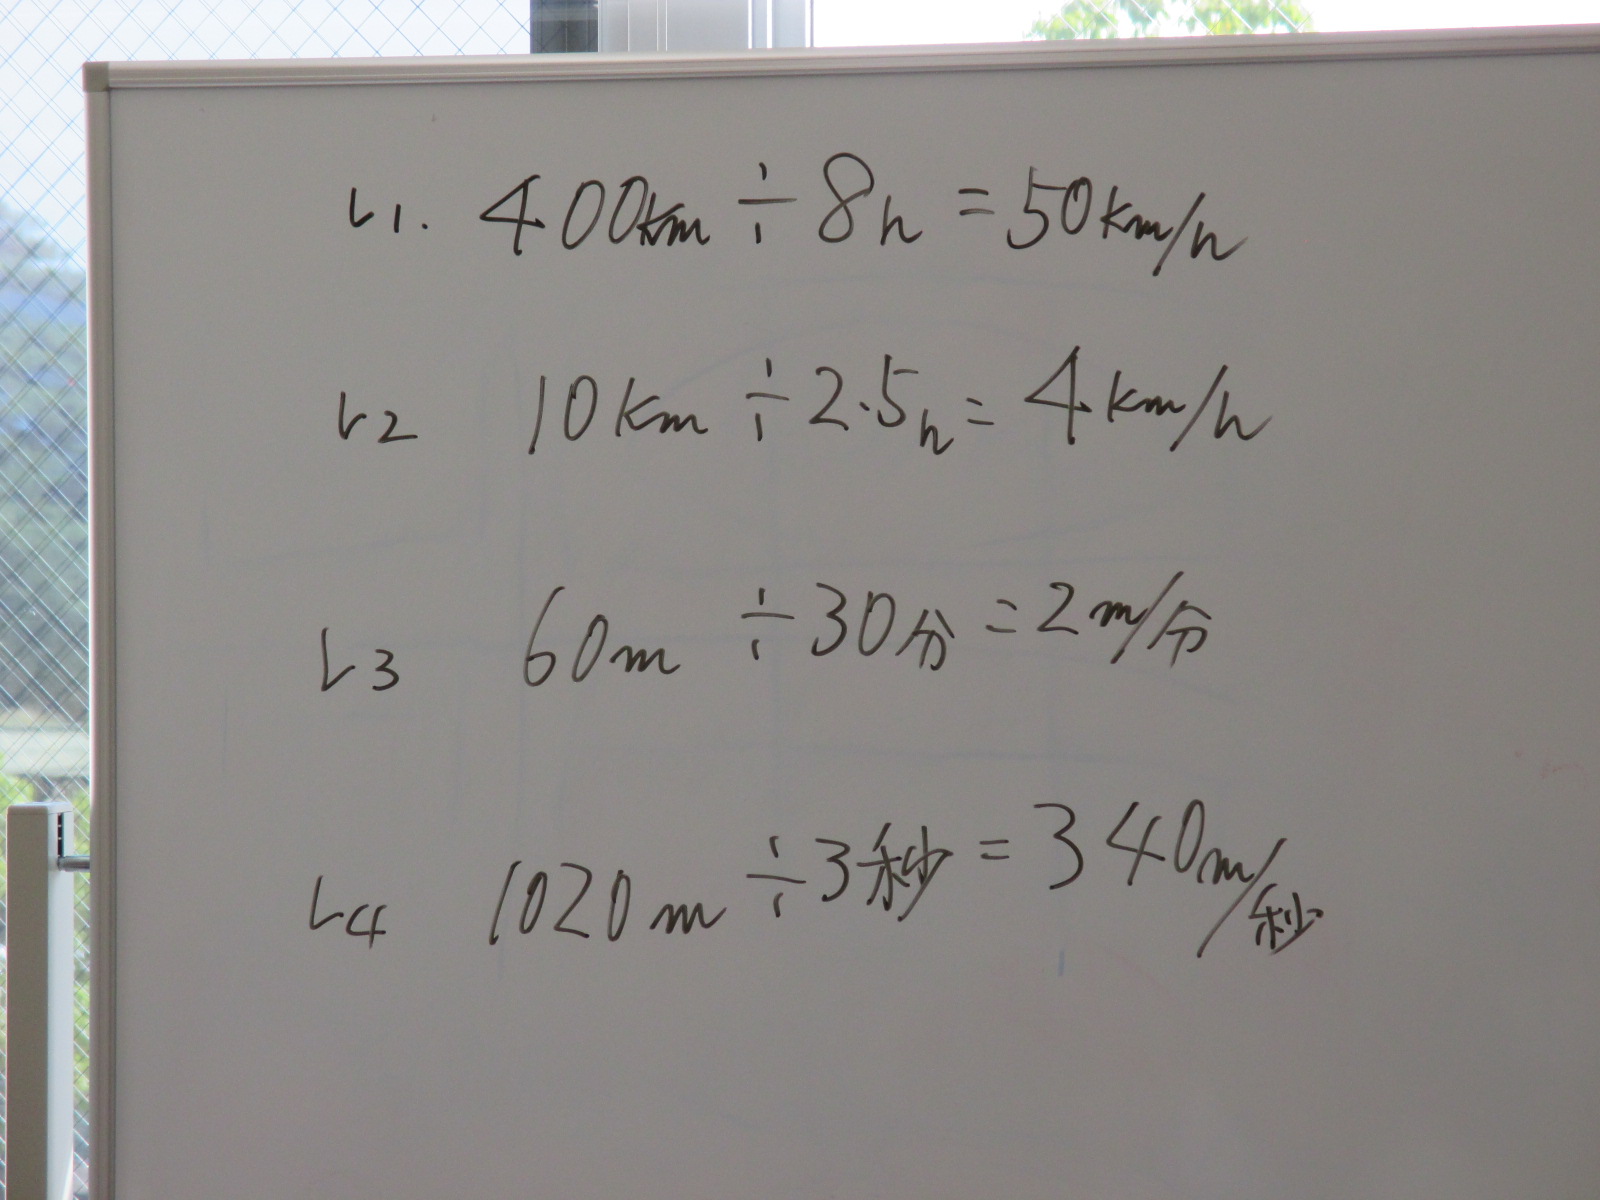 レ1. 400km÷8h=50km/h
レ2 10km÷2.5h=4km/h
レ3 60m÷30分=2m/分
レ4 1020m÷3秒=340m/秒